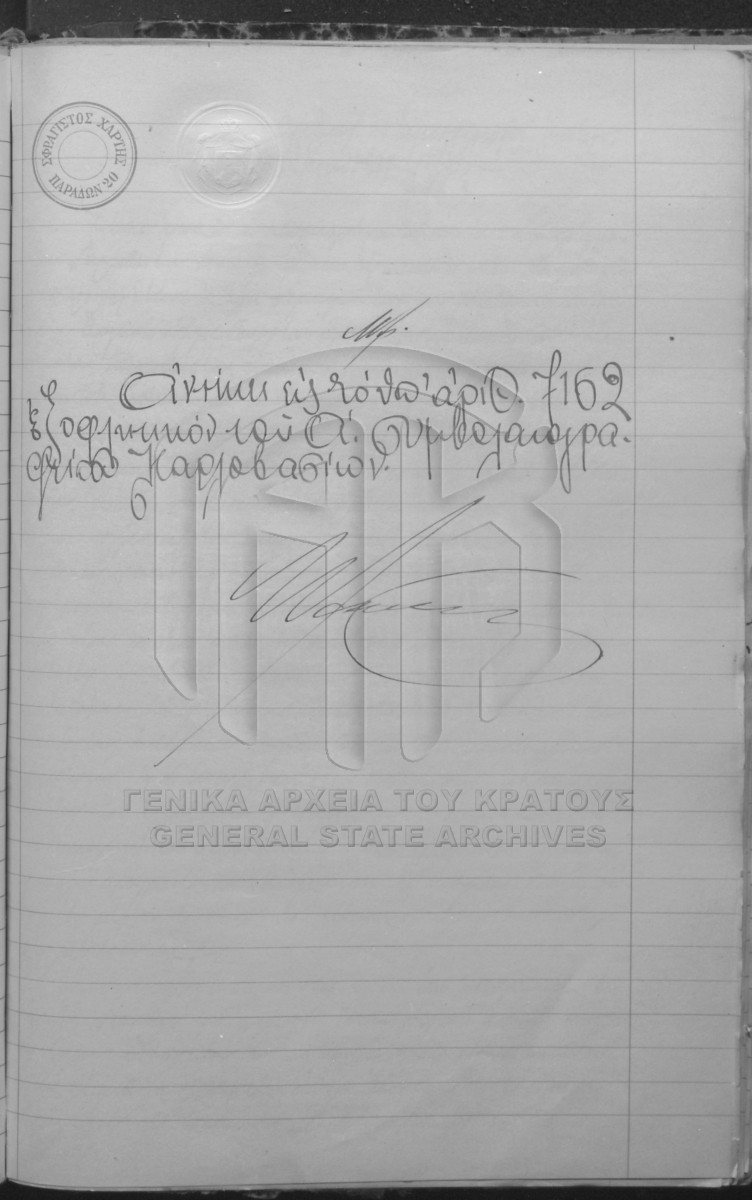 ΣΦΡΑΓΙΣΤΟΣ ΧΑΡΤΗΣ
ΠΑΡΑΔΩΝ 20
Ἀνήκει εἰς τὸ ὑπ' ἀριθ. 7162
ἐξοφλητικόν τοῦ Α. Συμβολαιογρα-
φείου Καρλοβασίων.
ΓΕΝΙΚΑ ΑΡΧΕΙΑ ΤΟΥ ΚΡΑΤΟΥΣ
GENERAL STATE ARCHIVES